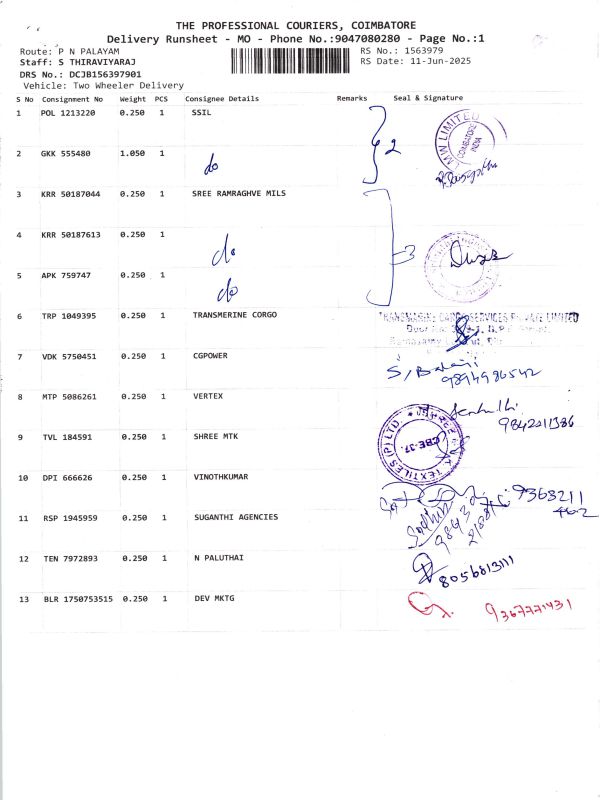 THE PROFESSIONAL COURIERS, COIMBATORE
Delivery Runsheet - MO - Phone No.:9047080280 - Page No.:1
Route: P N PALAYAM RS No.: 1563979
Staff: S THIRAVIYARAJ RS Date: 11-Jun-2025
DRS No.: DCJB156397901
Vehicle: Two Wheeler Delivery
S No Consignment No Weight PCS Consignee Details Remarks Seal & Signature
1 POL 1213220 0.250 1 SSIL
2
MW LIMITED
COIMBATORE
INDIA
2 GKK 555480 1.050 1 do
3 KRR 50187044 0.250 1 SREE RAMRAGHVE MILS
4 KRR 50187613 0.250 1 do
3
5 APK 759747 0.250 1 do
6 TRP 1049395 0.250 1 TRANSMERINE CORGO
TRANSMARINE CARGO SERVICES PRIVATE LIMITED
7 VDK 5750451 0.250 1 CGPOWER
S/Balaji
9894986542
8 MTP 5086261 0.250 1 VERTEX
9842211386
9 TVL 184591 0.250 1 SHREE MTK
TEXTILES (P) LTD
CBE-37.
10 DPI 666626 0.250 1 VINOTHKUMAR
9363211
402
11 RSP 1945959 0.250 1 SUGANTHI AGENCIES
12 TEN 7972893 0.250 1 N PALUTHAI
8056813111
13 BLR 1750753515 0.250 1 DEV MKTG
9367771431